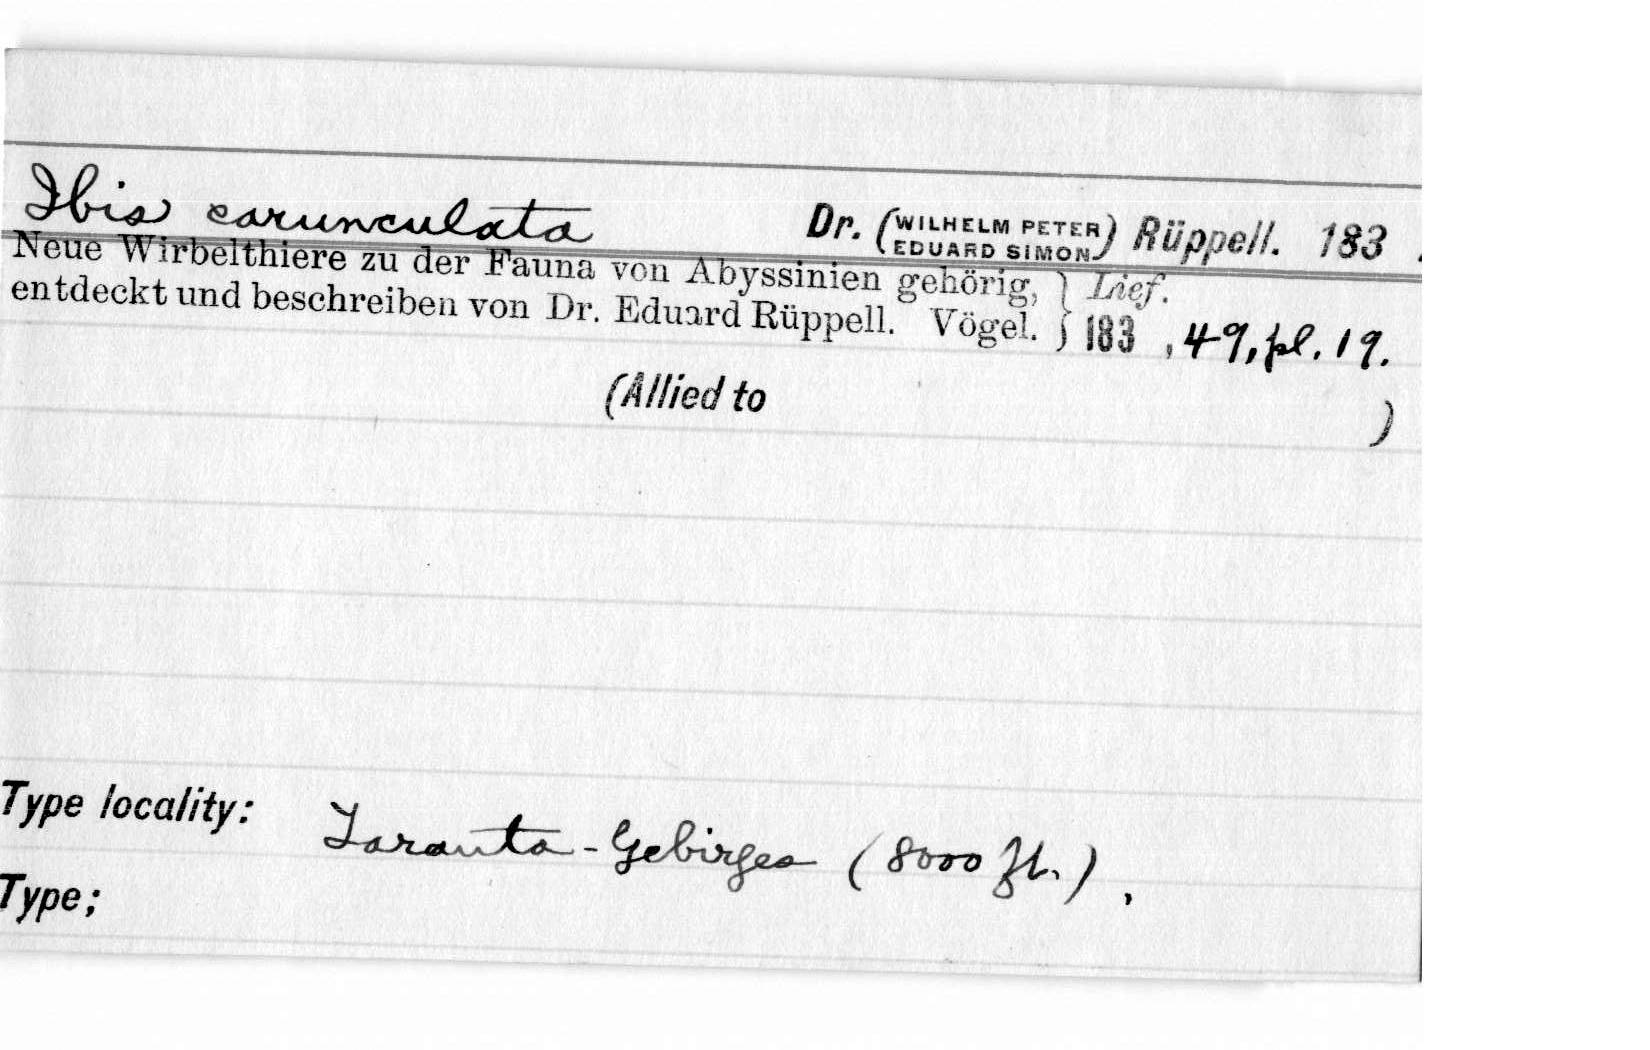 Ibis carunculata Dr. (WILHELM PETER EDUARD SIMON) Rüppell. 183 .
Neue Wirbelthiere zu der Fauna von Abyssinien gehörig, } Lief.
entdeckt und beschreiben von Dr. Eduard Rüppell. Vögel. } 183 , 49, pl. 19.
(Allied to )
Type locality: Taranta-Gebirges (8000 ft.) ,
Type;